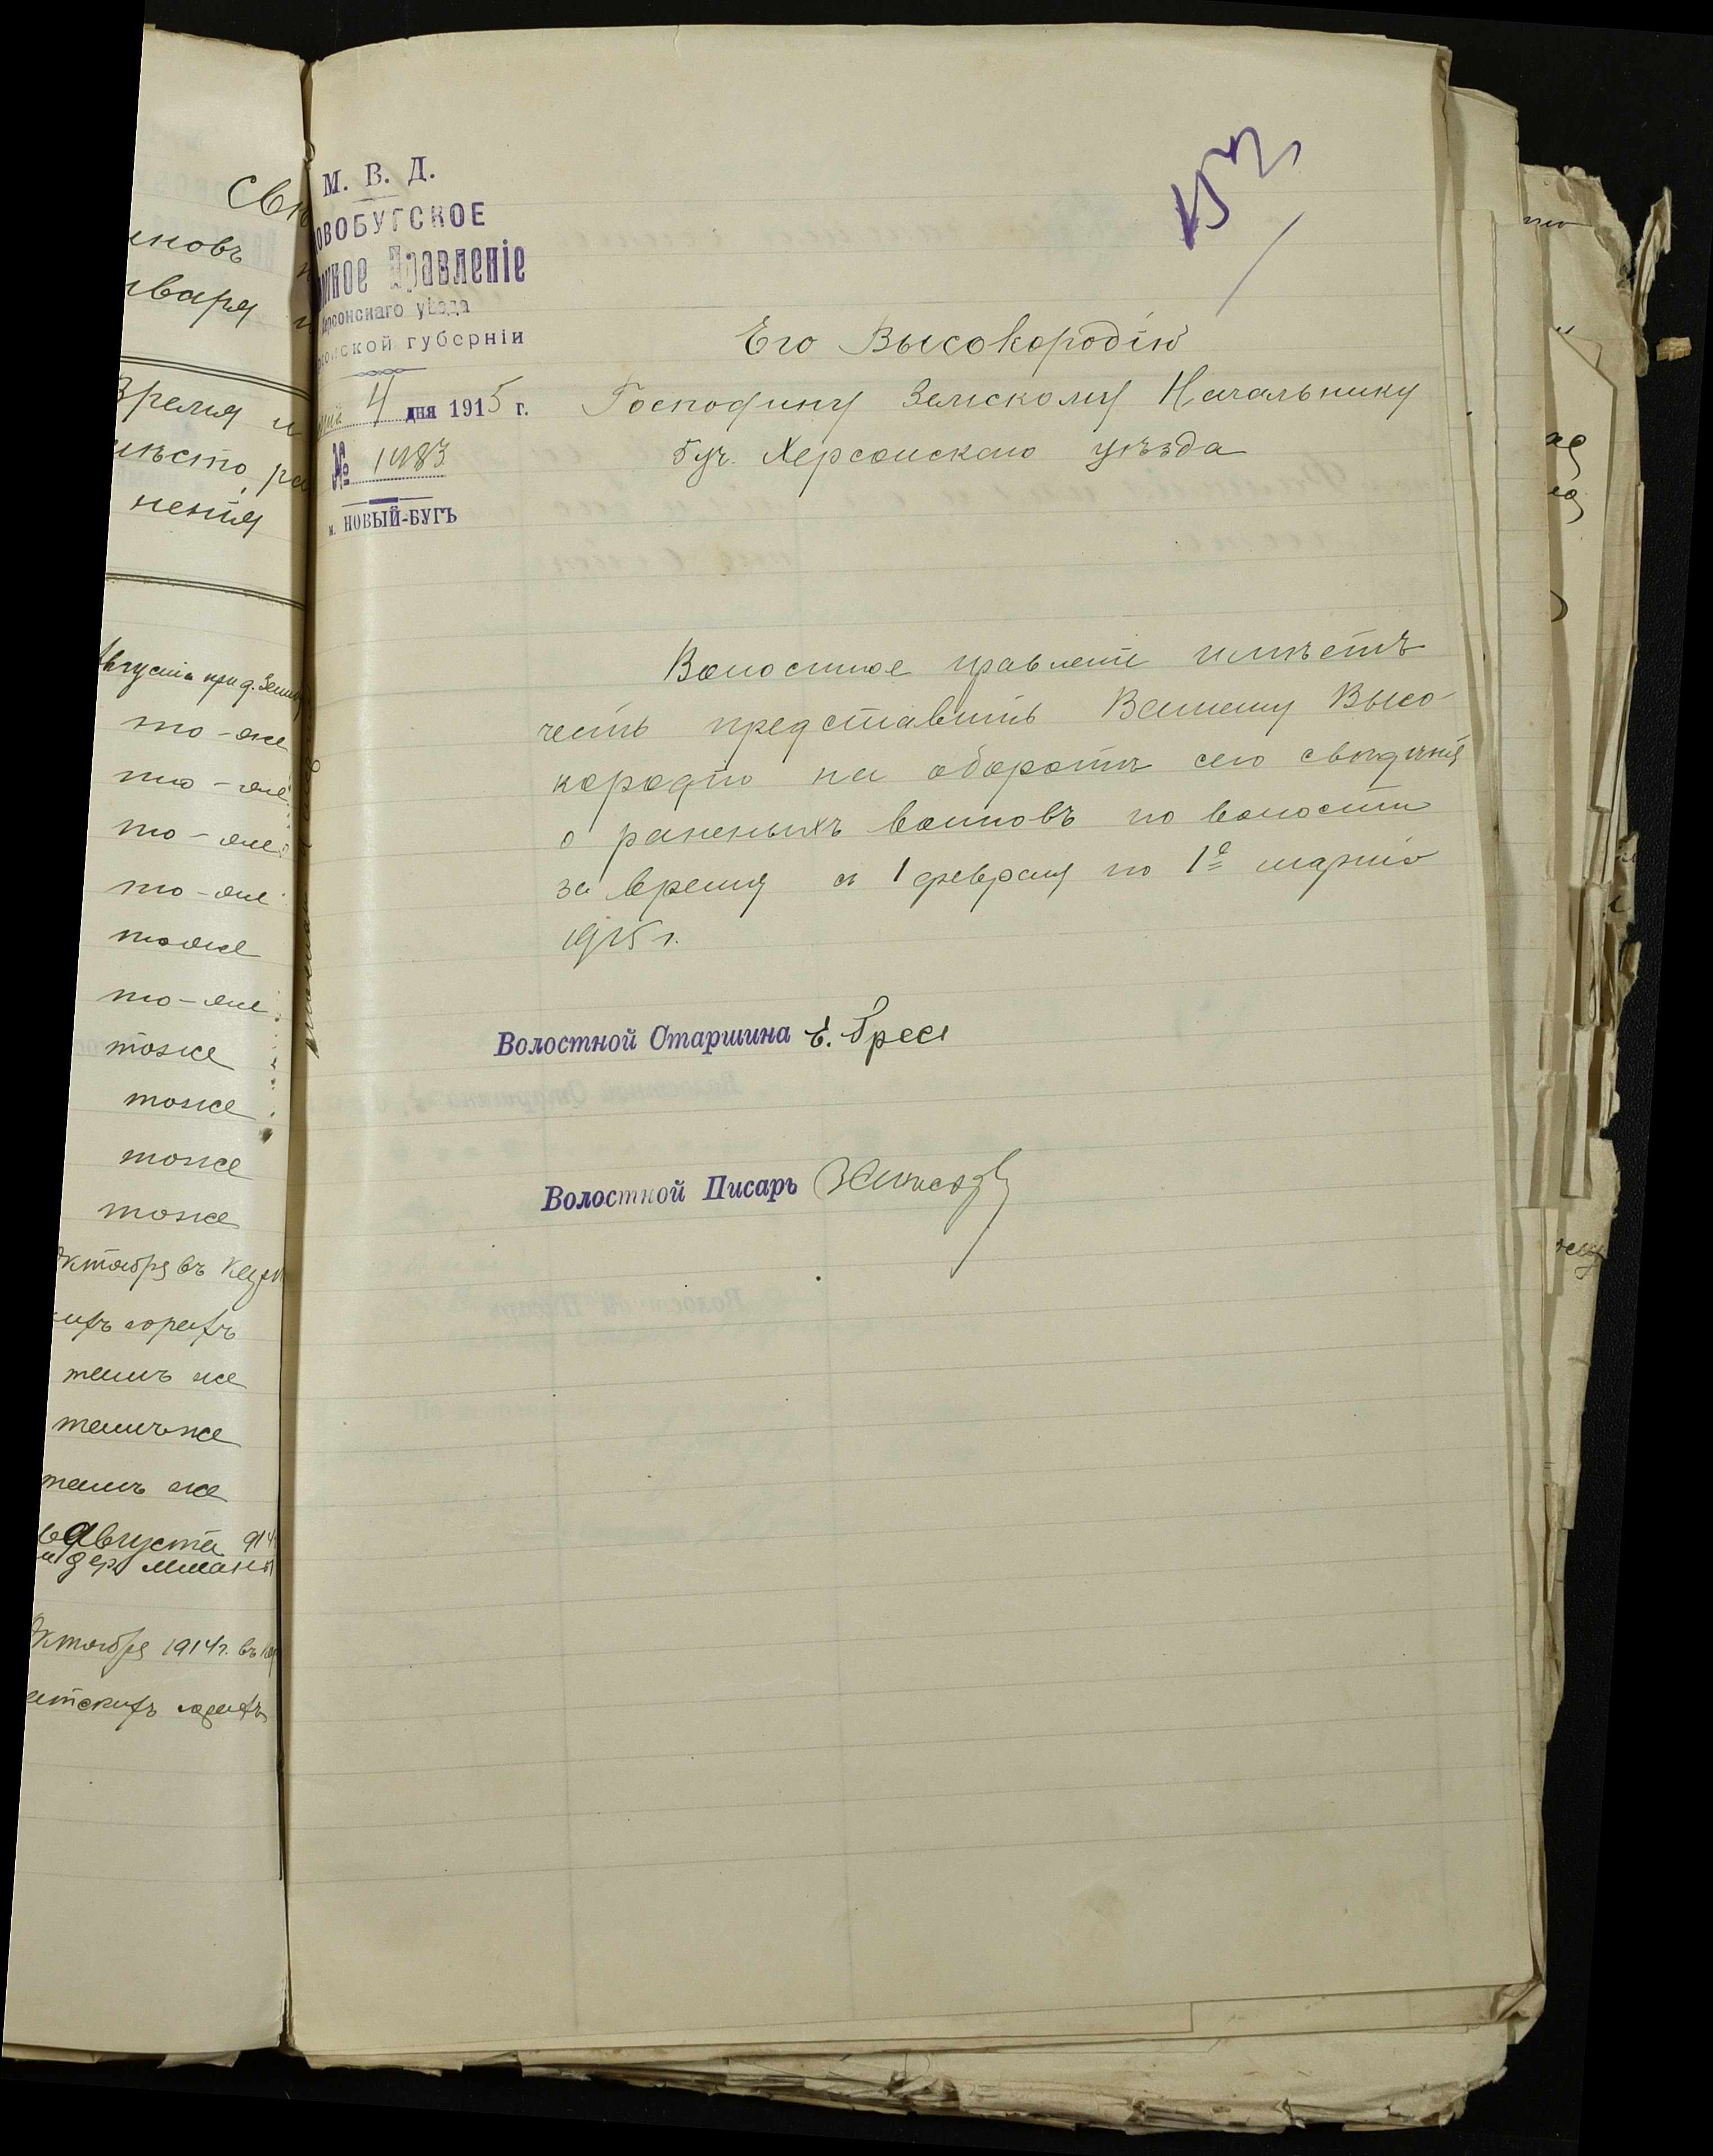 Свѣ
иновъ
нваря
Время и
мѣсто ра
ненія
Августа при д.
то-же
то-же
то-же
то-же
тоже
то-же
тоже
тоже
тоже
тоже
Октября въ
горахъ
тамъ же
тамъ же
тамъ же
Августа 914
дер
Октября 1914 г. въ
М. В. Д.
НОВОБУГСКОЕ
Правленіе
Херсонскаго уѣзда
губерніи
4 дня 1915 г.
№ 1983
м. НОВЫЙ-БУГЪ
153
Его Высокородію
Господину Земскому Начальнику
5 уч. Херсонскаго уѣзда
Волостное правленіе имѣетъ
честь представить Вашему Высо-
кородію на оборотѣ сего свѣдѣнія
о раненыхъ воиновъ по волости
за время съ 1 февраля по 1е марта
1915 г.
Волостной Старшина Е.
Волостной Писарь